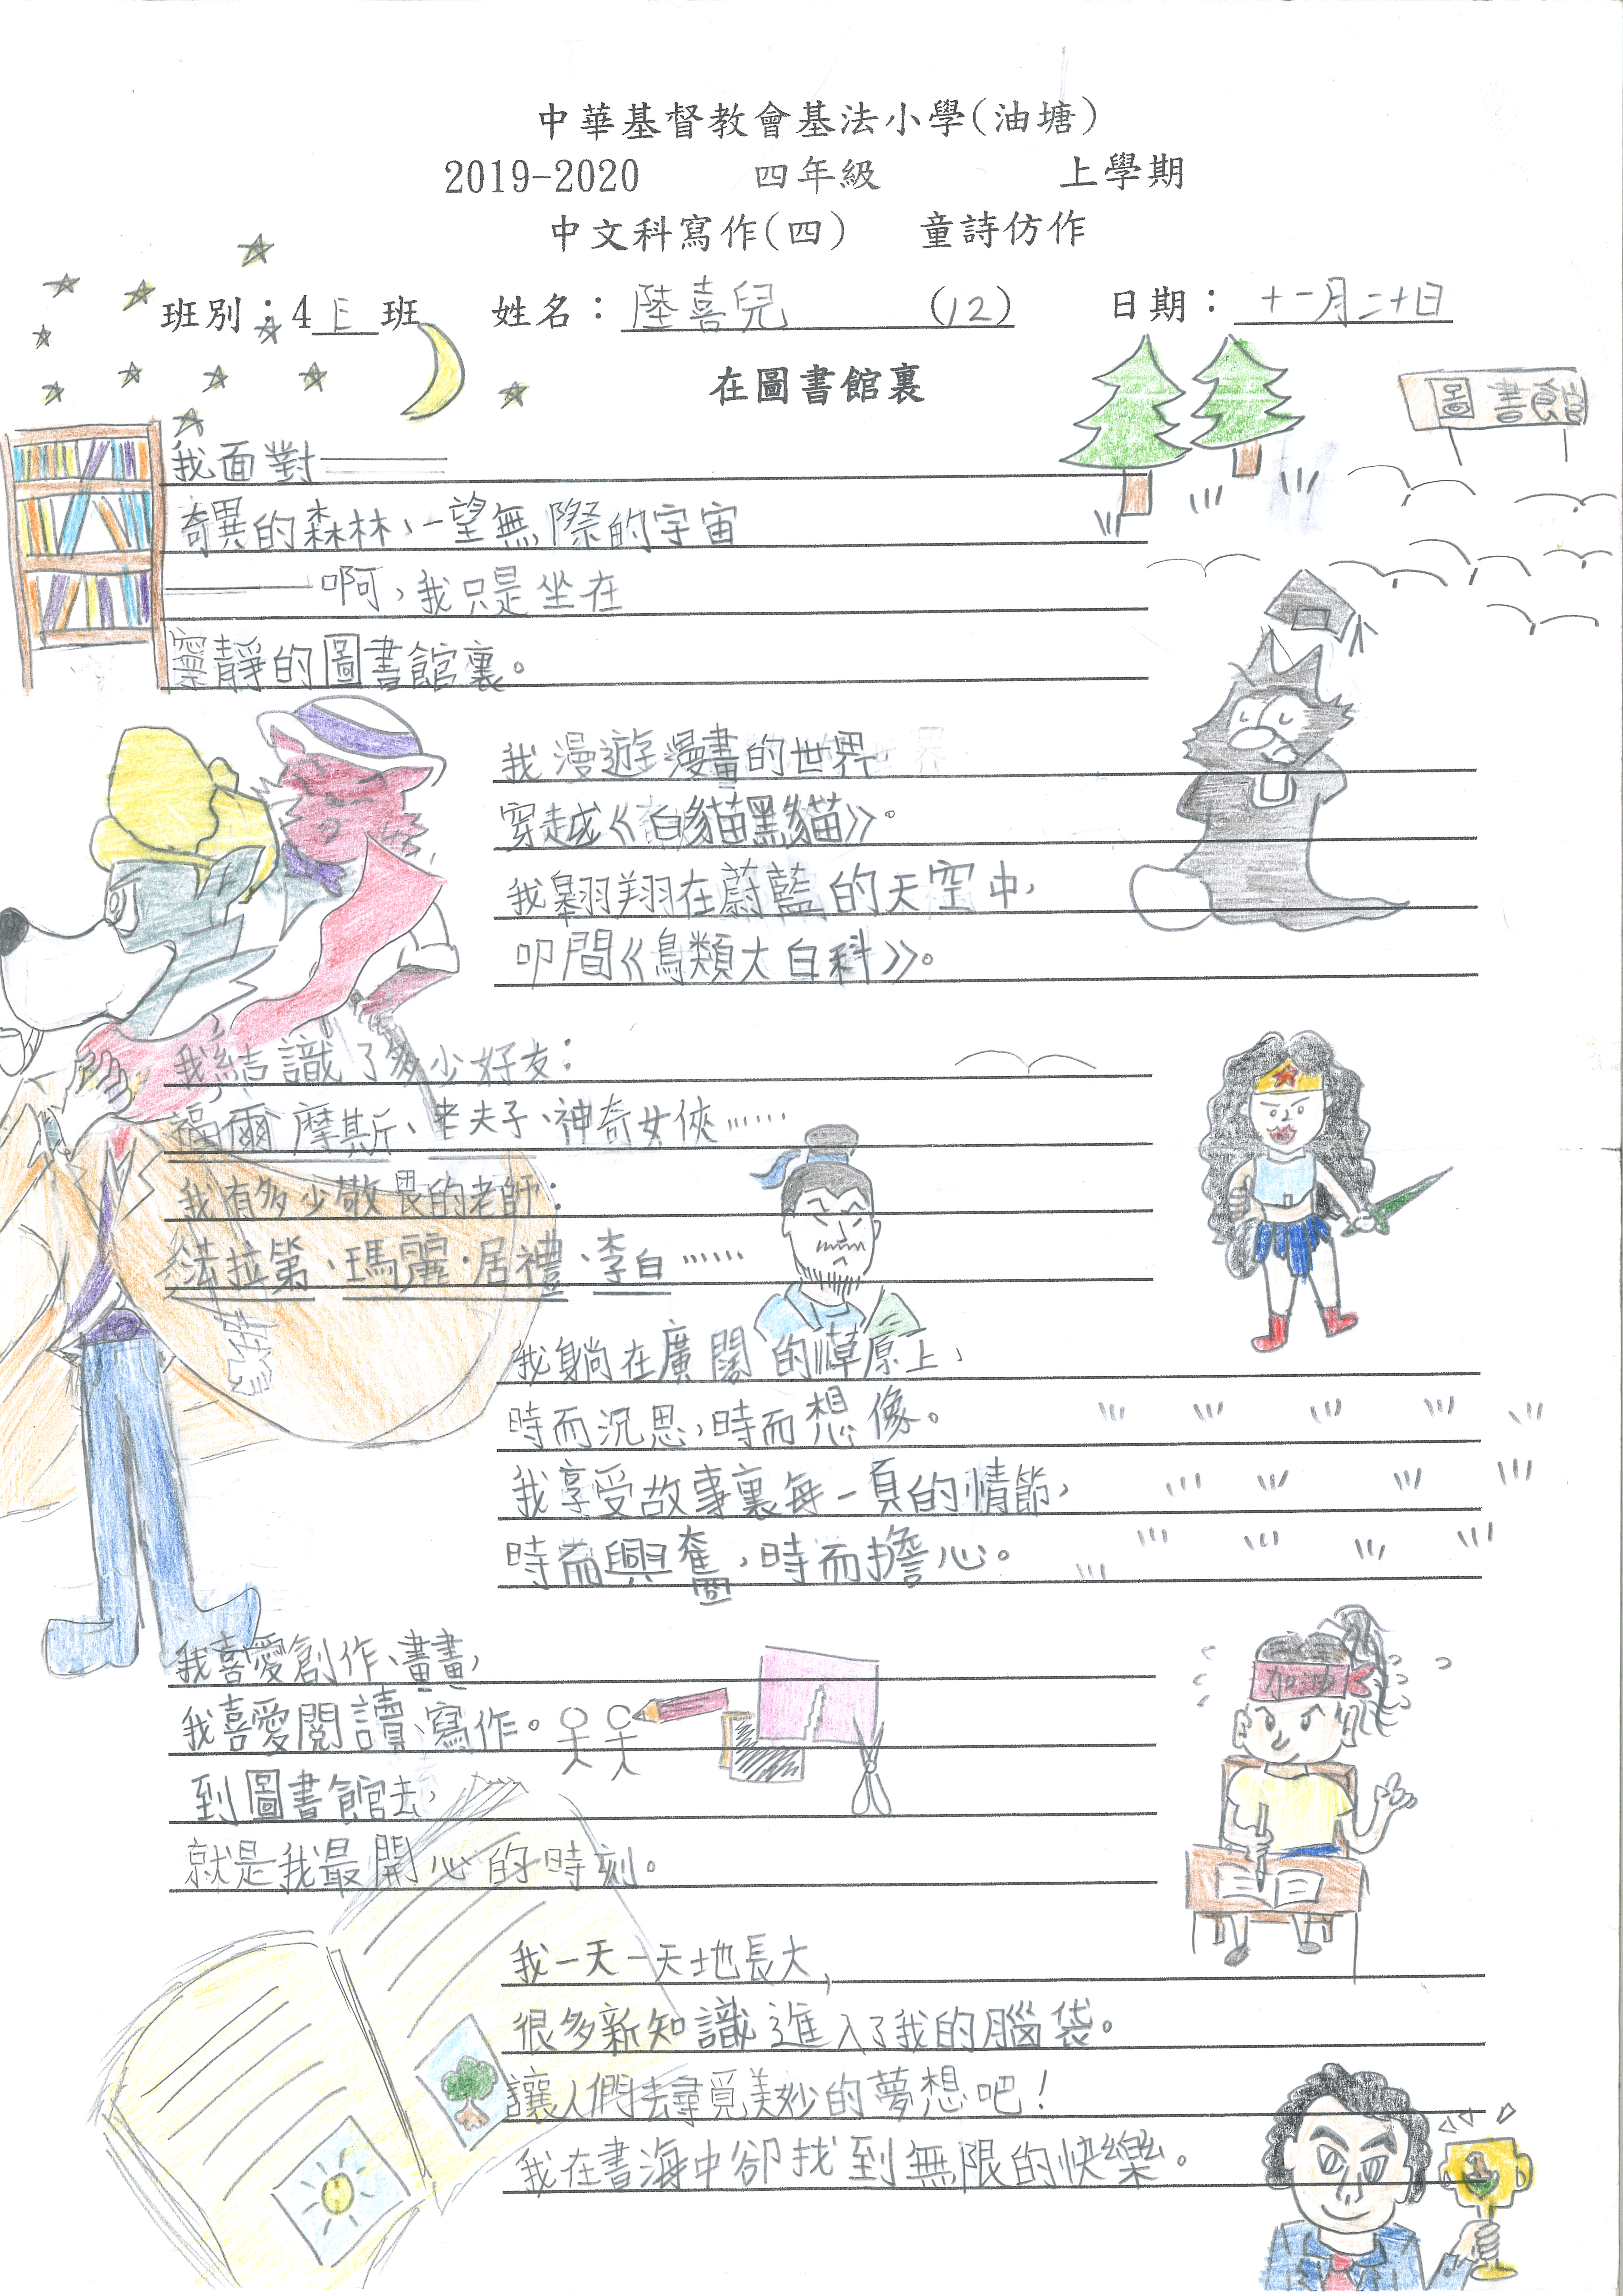 中華基督教會基法小學(油塘)
2019-2020 四年級 上學期
中文科寫作(四) 童詩仿作
班別：4E班 姓名：陸喜兒 (12) 日期：十一月二十日
在圖書館裏
圖書館
我面對——
奇異的森林、一望無際的宇宙
——啊，我只是坐在
寧靜的圖書館裏。
我漫遊漫畫的世界
穿越《白貓黑貓》。
我翱翔在蔚藍的天空中，
叩問《鳥類大百科》。
我結識了多少好友：
福爾摩斯、老夫子、神奇女俠……
我有多少敬畏的老師：
法拉第、瑪麗·居禮、李白……
我躺在廣闊的草原上，
時而沉思，時而想像。
我享受故事裏每一頁的情節，
時而興奮，時而擔心。
我喜愛創作、畫畫，
我喜愛閱讀、寫作。
到圖書館去，
就是我最開心的時刻。
加油
我一天一天地長大，
很多新知識進入了我的腦袋。
讓人們去尋覓美妙的夢想吧！
我在書海中卻找到無限的快樂。
1